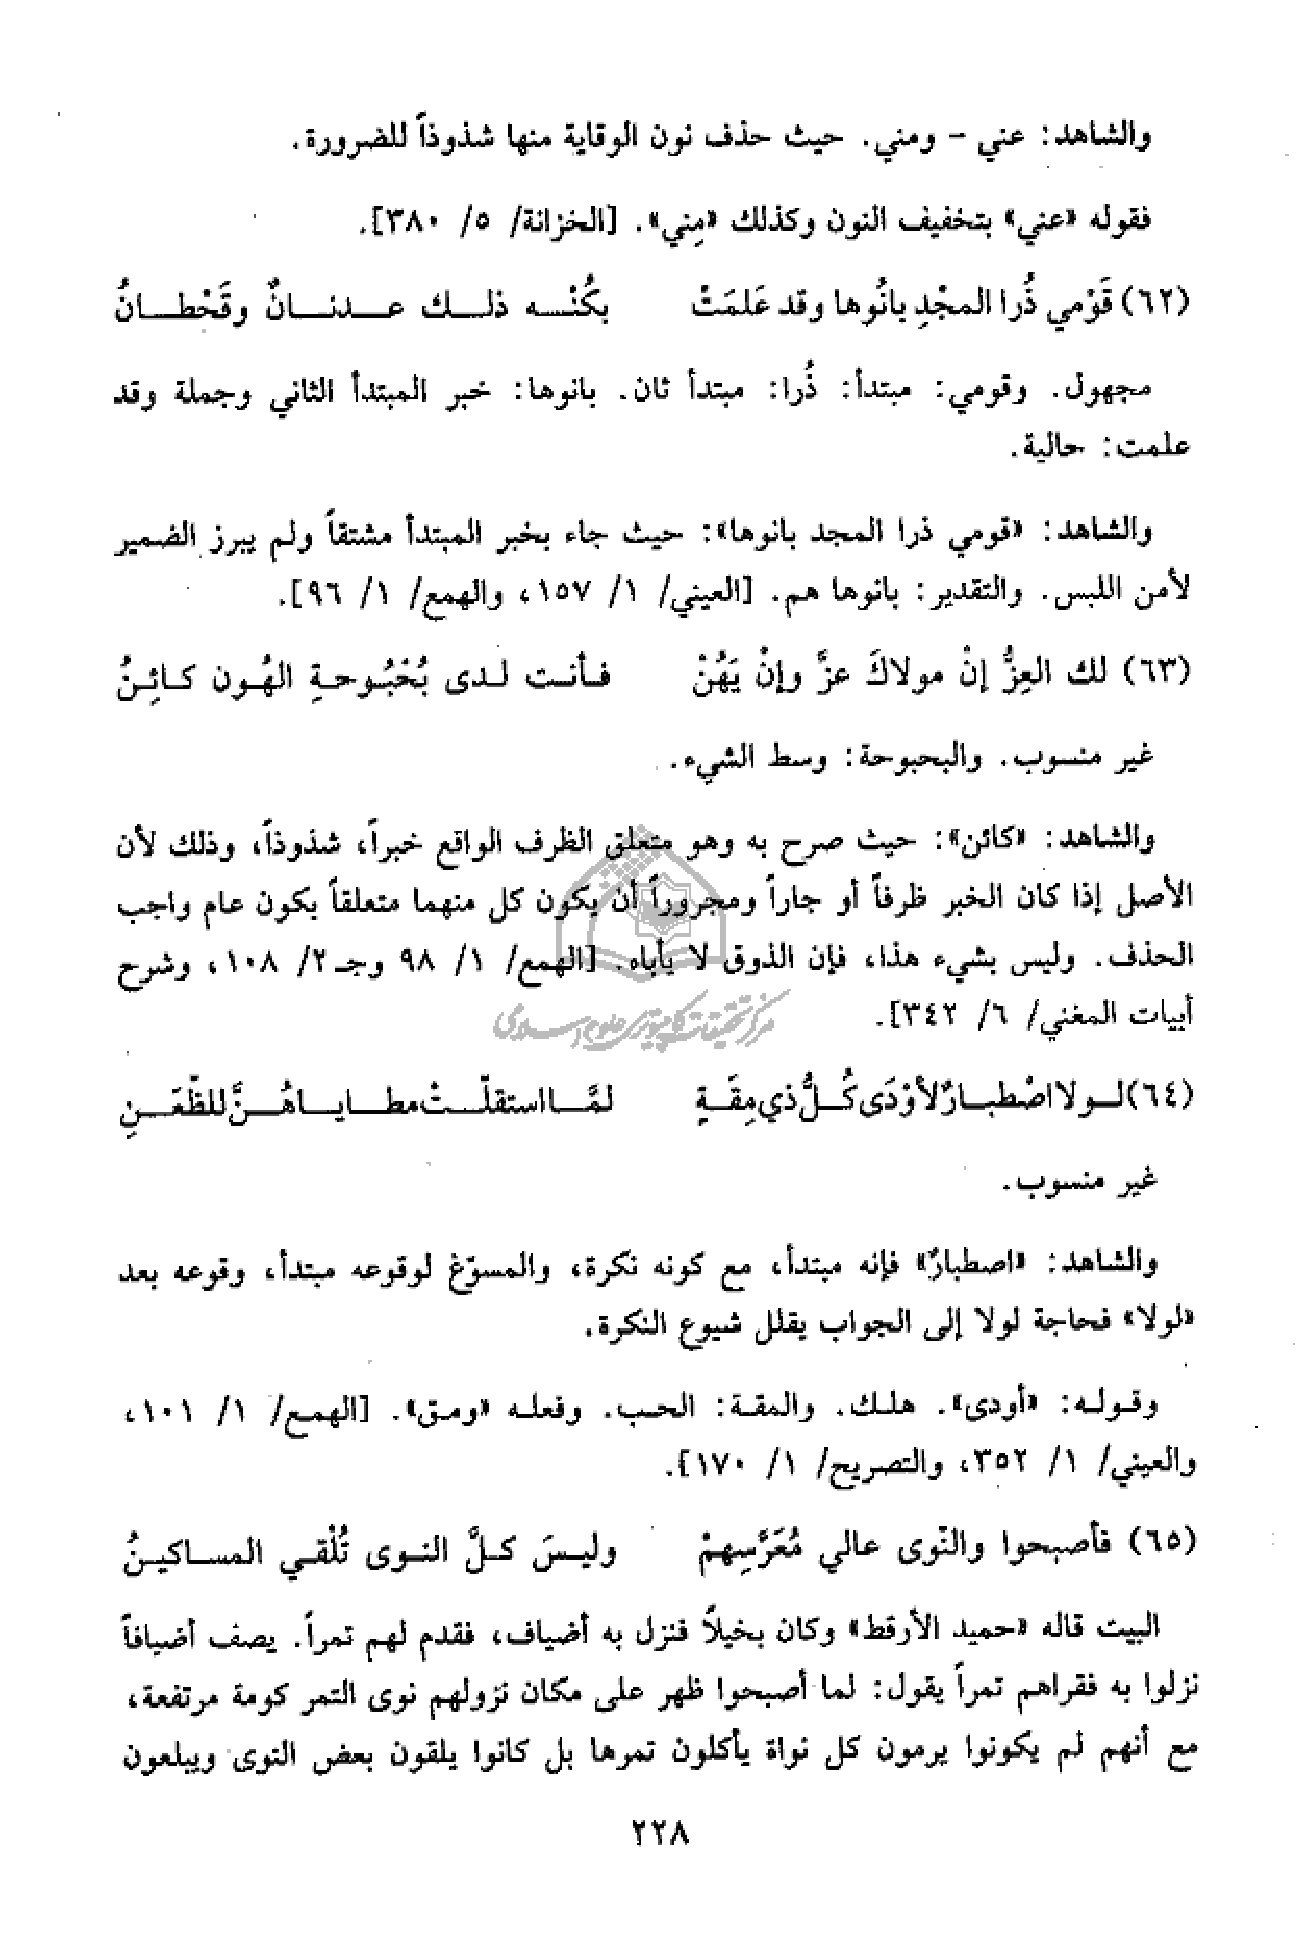 والشاهد: عني - ومني. حيث حذف نون الوقاية منها شذوذاً للضرورة.
فقوله «عني» بتخفيف النون وكذلك «مِني». [الخزانة/ ٥/ ٣٨٠].
(٦٢) قَوْمي ذُرا المجْدِ بانُوها وقد عَلمَتْ بكُنْـــه ذلـــك عـــدنـــانٌ وقَحْطـــانُ
مجهول. وقومي: مبتدأ: ذُرا: مبتدأ ثان. بانوها: خبر المبتدأ الثاني وجملة وقد
علمت: حالية.
والشاهد: «قومي ذرا المجد بانوها»: حيث جاء بخبر المبتدأ مشتقاً ولم يبرز الضمير
لأمن اللبس. والتقدير: بانوها هم. [العيني/ ١/ ١٥٧، والهمع/ ١/ ٩٦].
(٦٣) لك العِزُّ إنْ مولاكَ عزَّ وإنْ يَهُنْ فـأنـت لـدى بُحْبُـوحـةِ الهُـون كـائِـنُ
غير منسوب. والبحبوحة: وسط الشيء.
والشاهد: «كائن»: حيث صرح به وهو متعلق الظرف الواقع خبراً، شذوذاً، وذلك لأن
الأصل إذا كان الخبر ظرفاً أو جاراً ومجروراً أن يكون كل منهما متعلقاً بكون عام واجب
الحذف. وليس بشيء هذا، فإن الذوق لا يأباه. [الهمع/ ١/ ٩٨ وجـ ٢/ ١٠٨، وشرح
أبيات المغني/ ٦/ ٣٤٢].
مركز تحقيقات كامپيوتری علوم اسلامی
(٦٤) لـــولا اصْطبـــارٌ لأوْدَى كُـــلُّ ذي مِقَـــةٍ لمَّـــا استقلّـــتْ مطـــايـــاهُـــنَّ للظّعَـــنِ
غير منسوب.
والشاهد: «اصطبارٌ» فإنه مبتدأ، مع كونه نكرة، والمسوّغ لوقوعه مبتدأ، وقوعه بعد
«لولا» فحاجة لولا إلى الجواب يقلل شيوع النكرة.
وقـولـه: «أودى». هلـك. والمقـة: الحـب. وفعلـه «ومـق». [الهمـع/ ١/ ١٠١،
والعيني/ ١/ ٣٥٢، والتصريح/ ١/ ١٧٠].
(٦٥) فأصبحوا والنّوى عالي مُعَرَّسِهمْ وليـسَ كـلَّ النـوى تُلْقـي المسـاكيـنُ
البيت قاله «حميد الأرقط» وكان بخيلاً فنزل به أضياف، فقدم لهم تمراً. يصف أضيافاً
نزلوا به فقراهم تمراً يقول: لما أصبحوا ظهر على مكان نزولهم نوى التمر كومة مرتفعة،
مع أنهم لم يكونوا يرمون كل نواة يأكلون تمرها بل كانوا يلقون بعض النوى ويبلعون
٢٢٨